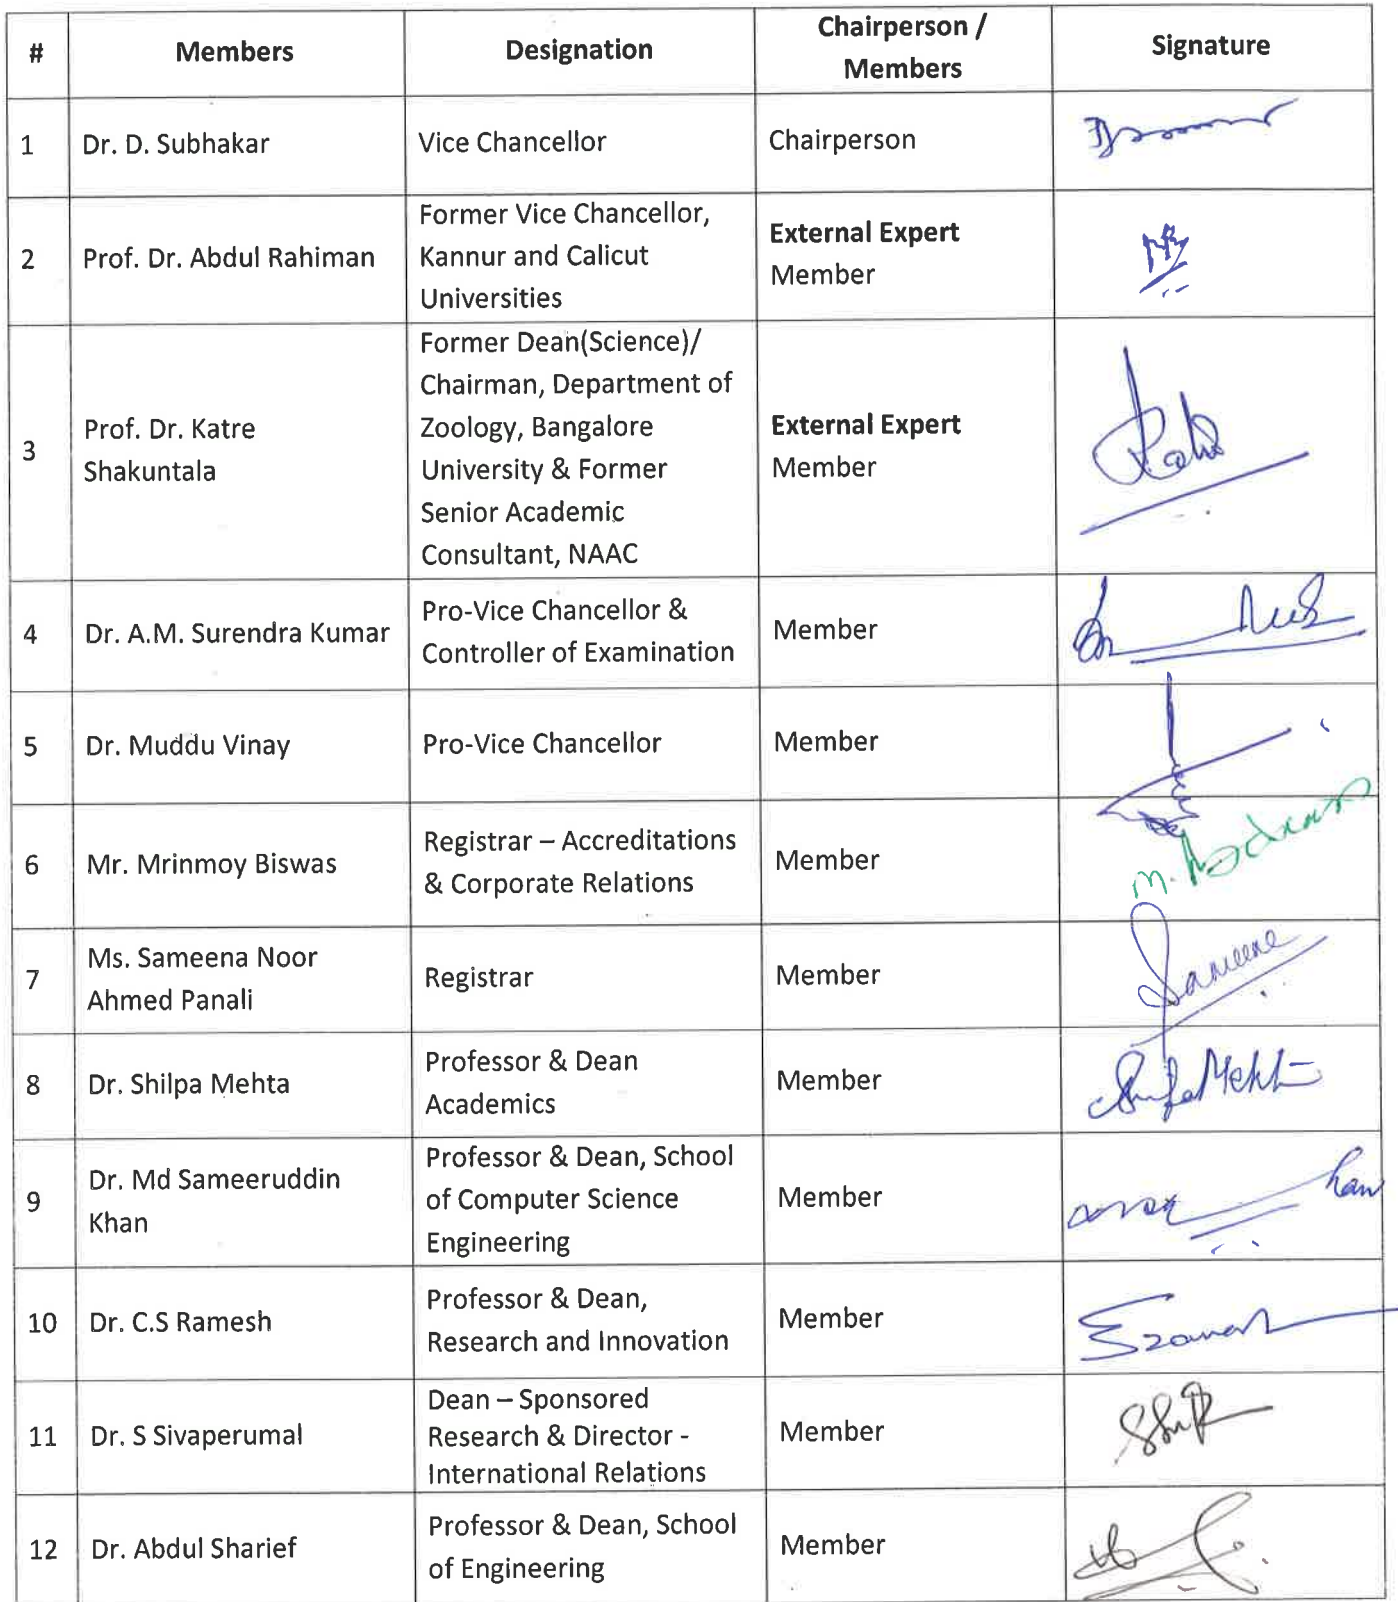 # Members Designation Chairperson / Members Signature
1 Dr. D. Subhakar Vice Chancellor Chairperson
2 Prof. Dr. Abdul Rahiman Former Vice Chancellor, Kannur and Calicut Universities External Expert Member
3 Prof. Dr. Katre Shakuntala Former Dean(Science)/ Chairman, Department of Zoology, Bangalore University & Former Senior Academic Consultant, NAAC External Expert Member
4 Dr. A.M. Surendra Kumar Pro-Vice Chancellor & Controller of Examination Member
5 Dr. Muddu Vinay Pro-Vice Chancellor Member
6 Mr. Mrinmoy Biswas Registrar – Accreditations & Corporate Relations Member
7 Ms. Sameena Noor Ahmed Panali Registrar Member Sameena
8 Dr. Shilpa Mehta Professor & Dean Academics Member
9 Dr. Md Sameeruddin Khan Professor & Dean, School of Computer Science Engineering Member
10 Dr. C.S Ramesh Professor & Dean, Research and Innovation Member
11 Dr. S Sivaperumal Dean – Sponsored Research & Director - International Relations Member
12 Dr. Abdul Sharief Professor & Dean, School of Engineering Member